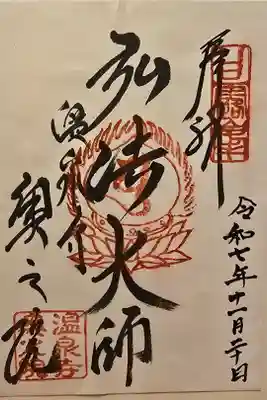 奉拝
令和七年十一月二十日
弘法大師
温泉寺
奥之院
温泉寺